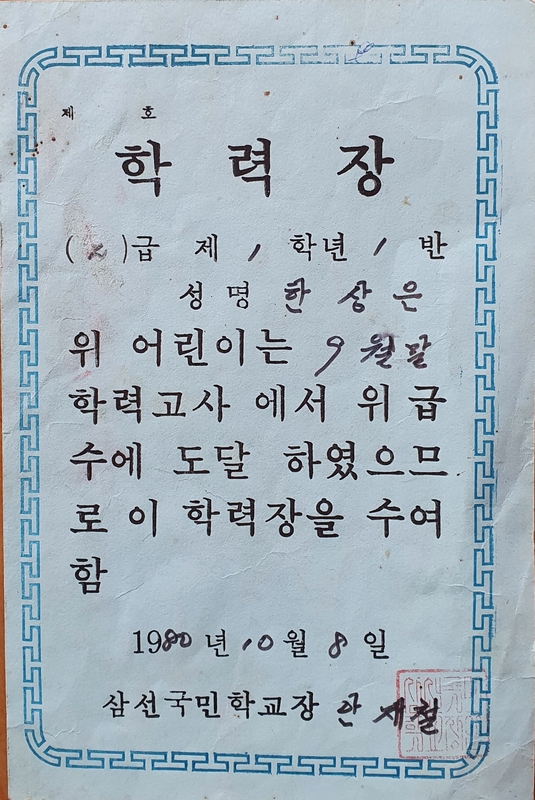 제 호
학 력 장
(2)급 제 1 학년 1 반
성명 한 상 은
위 어린이는 9 월말
학력고사 에서 위 급
수에 도달 하였으므
로 이 학력장을 수여
함
1980 년 10 월 8 일
삼선국민학교장 안 재철